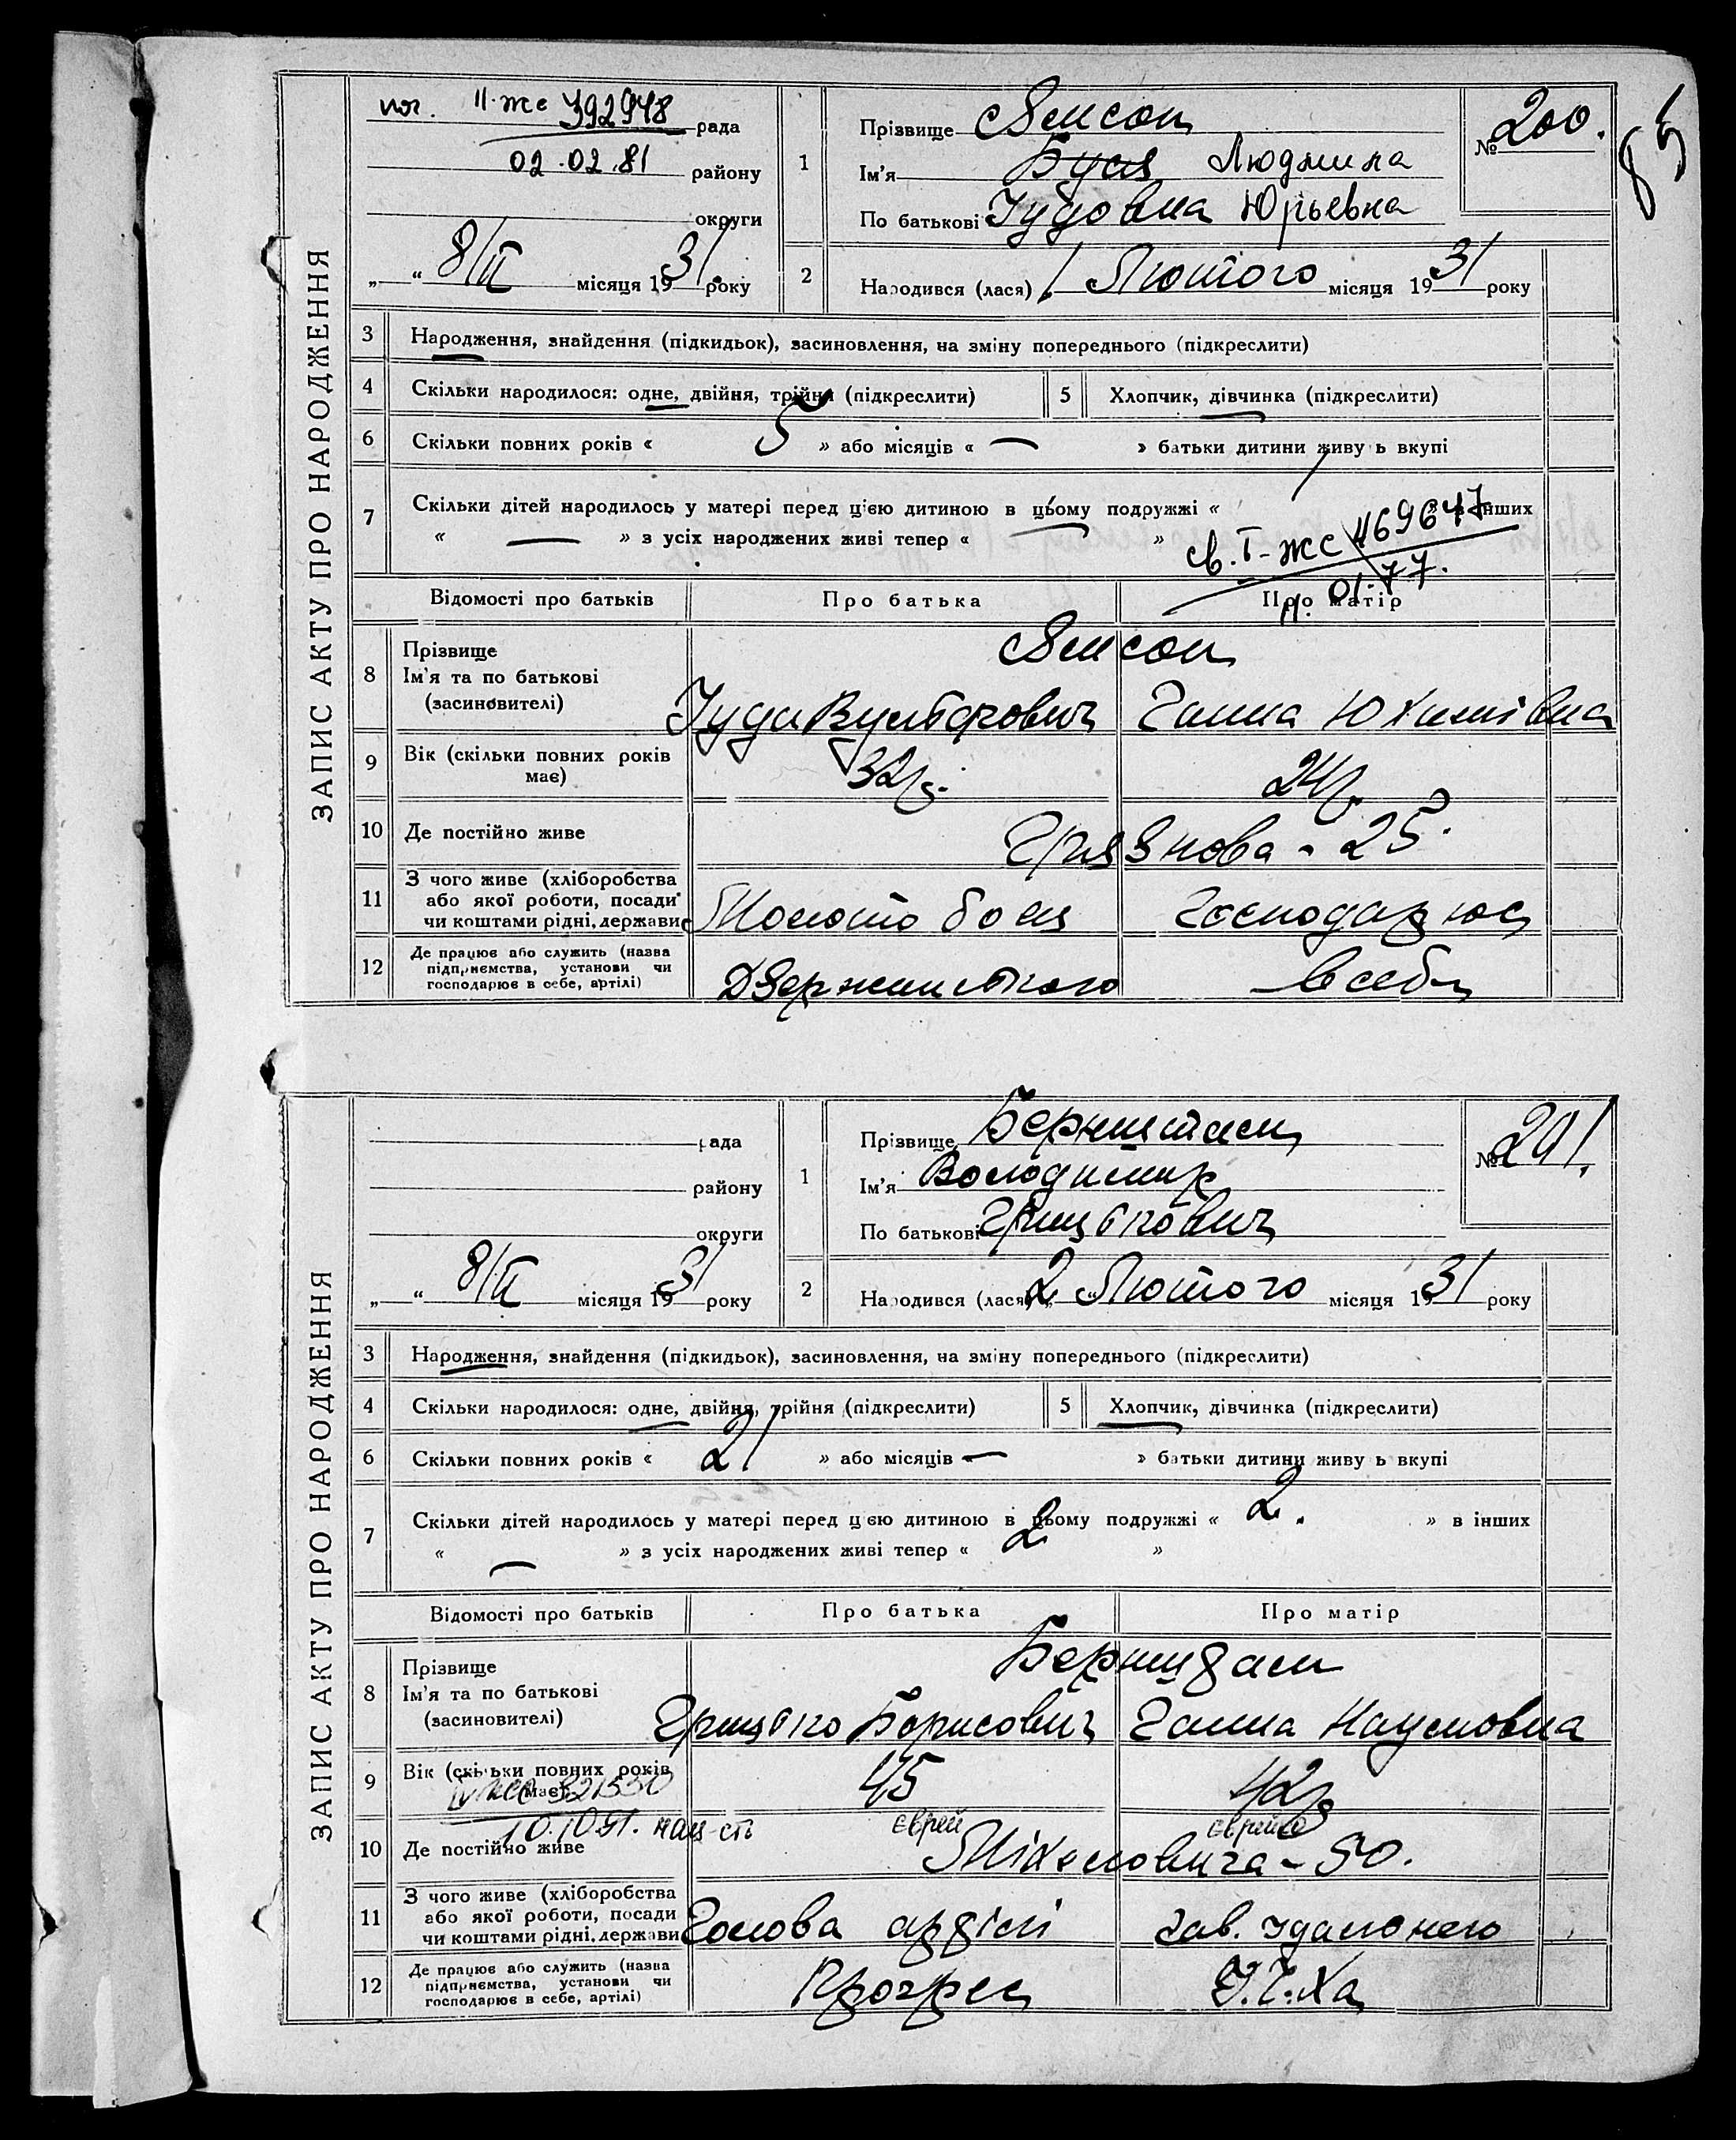 ЗАПИС АКТУ ПРО НАРОДЖЕННЯ
пов. II-ЖС 392948 рада
02.02.81 району
округи
„ “ 8/II місяця 1931 року
1
Прізвище
Ім'я Буся Людмила
По батькові Іудовна Юрьевна
№ 200.
2
Народився (лася) 1 Лютого місяця 1931 року
3 Народження, знайдення (підкидьок), засиновлення, на зміну попереднього (підкреслити)
4 Скільки народилося: одне, двійня, трійня (підкреслити)
5 Хлопчик, дівчинка (підкреслити)
6 Скільки повних років « 5 » або місяців « — » батьки дитини живуть вкупі
7 Скільки дітей народилось у матері перед цією дитиною в цьому подружжі « / » в інших
« — » з усіх народжених живі тепер « »
св. I-ЖС 469647
01.77.
Відомості про батьків Про батька Про матір
8 Прізвище
Ім'я та по батькові
(засиновителі)
Іуда Ганна Юхимівна
9 Вік (скільки повних років має) 32р. 24р.
10 Де постійно живе Грязнова - 25.
11 З чого живе (хліборобства або якої роботи, посади чи коштами рідні, держави) Молотобоєц Господарює
12 Де працює або служить (назва підприємства, установи чи господарює в себе, артілі) Дзержинського в себе
ЗАПИС АКТУ ПРО НАРОДЖЕННЯ
рада
району
округи
„ “ 8/II місяця 1931 року
1
Прізвище Бернштейн
Ім'я Володимир
По батькові Грицькович
№ 201.
2
Народився (лася) 2 „ Лютого місяця 1931 року
3 Народження, знайдення (підкидьок), засиновлення, на зміну попереднього (підкреслити)
4 Скільки народилося: одне, двійня, трійня (підкреслити)
5 Хлопчик, дівчинка (підкреслити)
6 Скільки повних років « 21 » або місяців « — » батьки дитини живуть вкупі
7 Скільки дітей народилось у матері перед цією дитиною в цьому подружжі « 2. » в інших
« — » з усіх народжених живі тепер « 2 »
Відомості про батьків Про батька Про матір
8 Прізвище
Ім'я та по батькові
(засиновителі)
Бернштейн
Грицько Борисович Ганна Наумовна
9 Вік (скільки повних років має) 45 42р
10.10.91. нац-сть єврей єврейка
10 Де постійно живе Міхеловича - 50.
11 З чого живе (хліборобства або якої роботи, посади чи коштами рідні, держави) Голова артілі зав.
12 Де працює або служить (назва підприємства, установи чи господарює в себе, артілі) Прогрес